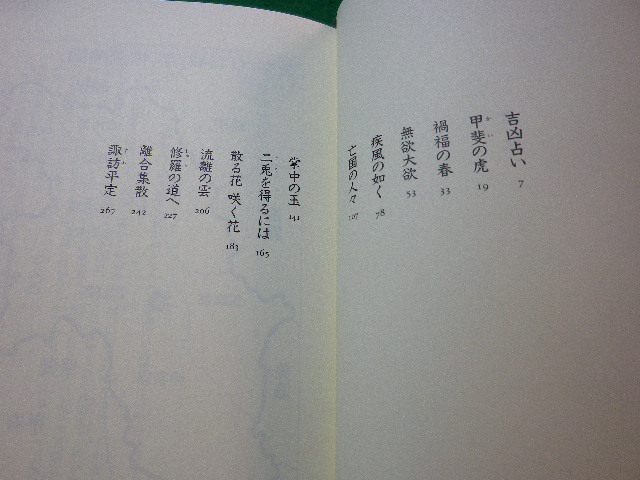 吉凶占い 7
甲斐の虎 19
禍福の春 33
無欲大欲 53
疾風の如く 78
亡国の人々 107
掌中の玉 141
二兎を得るには 165
散る花 咲く花 183
流離の雲 206
修羅の道へ 227
離合集散 242
諏訪平定 267